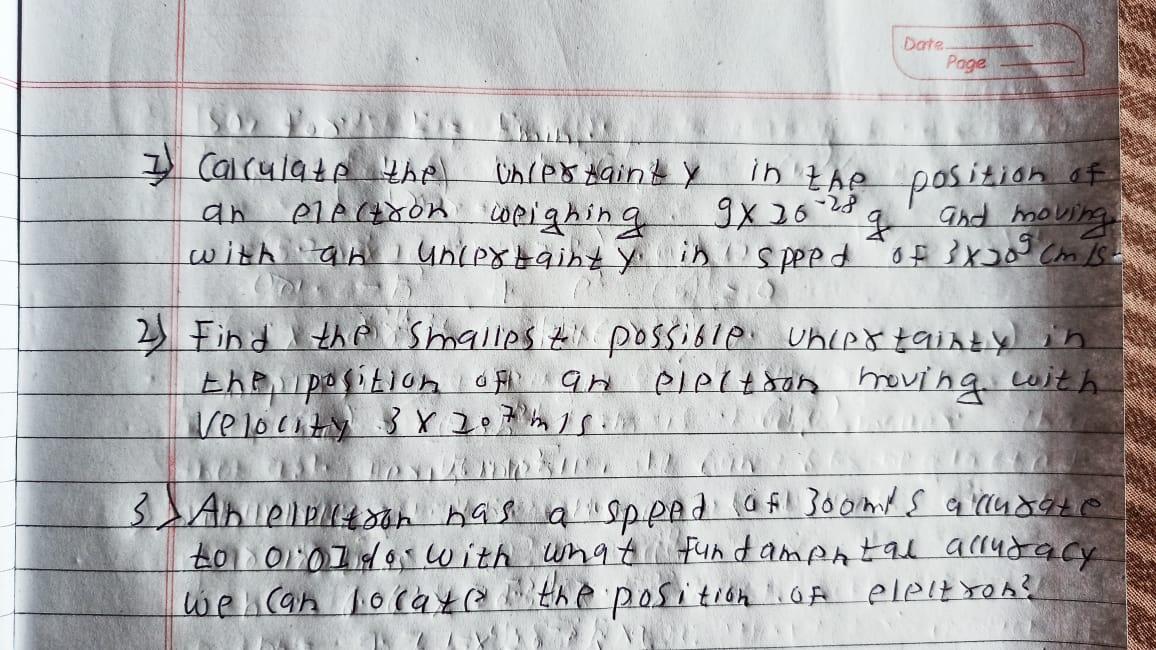 Date
Page
1) Calculate the uncertainty in the position of
an electron weighing 9 x 10⁻²⁸ g and moving
with an uncertainty in speed of 3x10⁹ cm/s.
2) Find the smallest possible uncertainty in
the position of an electron moving with
velocity 3 x 10⁷ m/s.
3) An electron has a speed of 300m/s accurate
to 0.01%. with what fundamental accuracy
we can locate the position of electron?